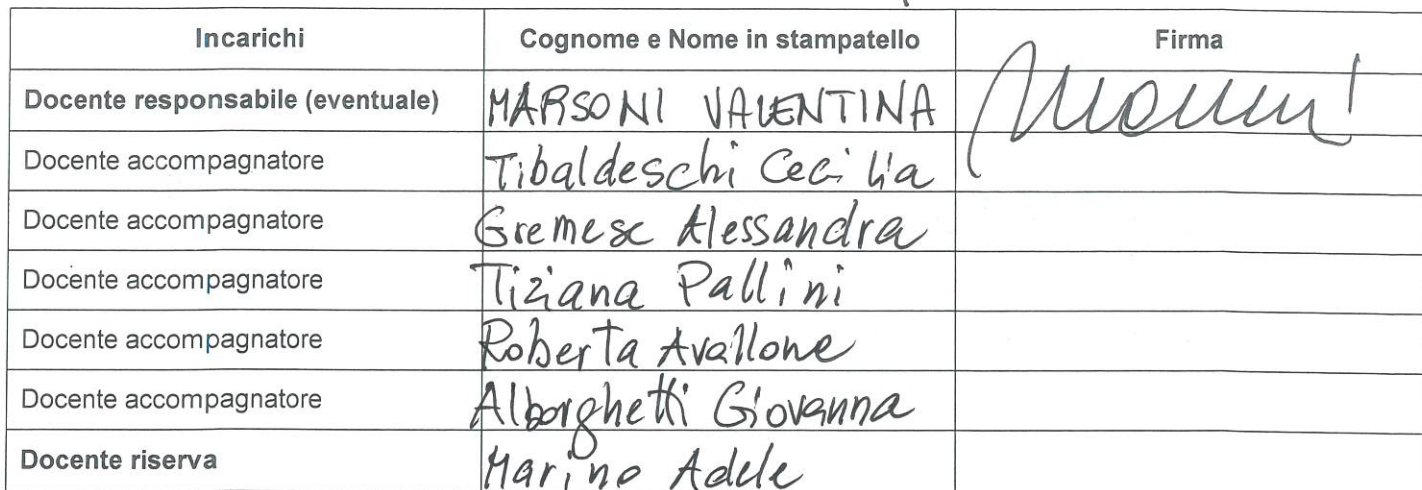 Incarichi Cognome e Nome in stampatello Firma
Docente responsabile (eventuale) MARSONI VALENTINA
Docente accompagnatore Tibaldeschi Cecilia
Docente accompagnatore Gremesc Alessandra
Docente accompagnatore Tiziana Pallini
Docente accompagnatore Roberta Avallone
Docente accompagnatore Alborghetti Giovanna
Docente riserva Marino Adele